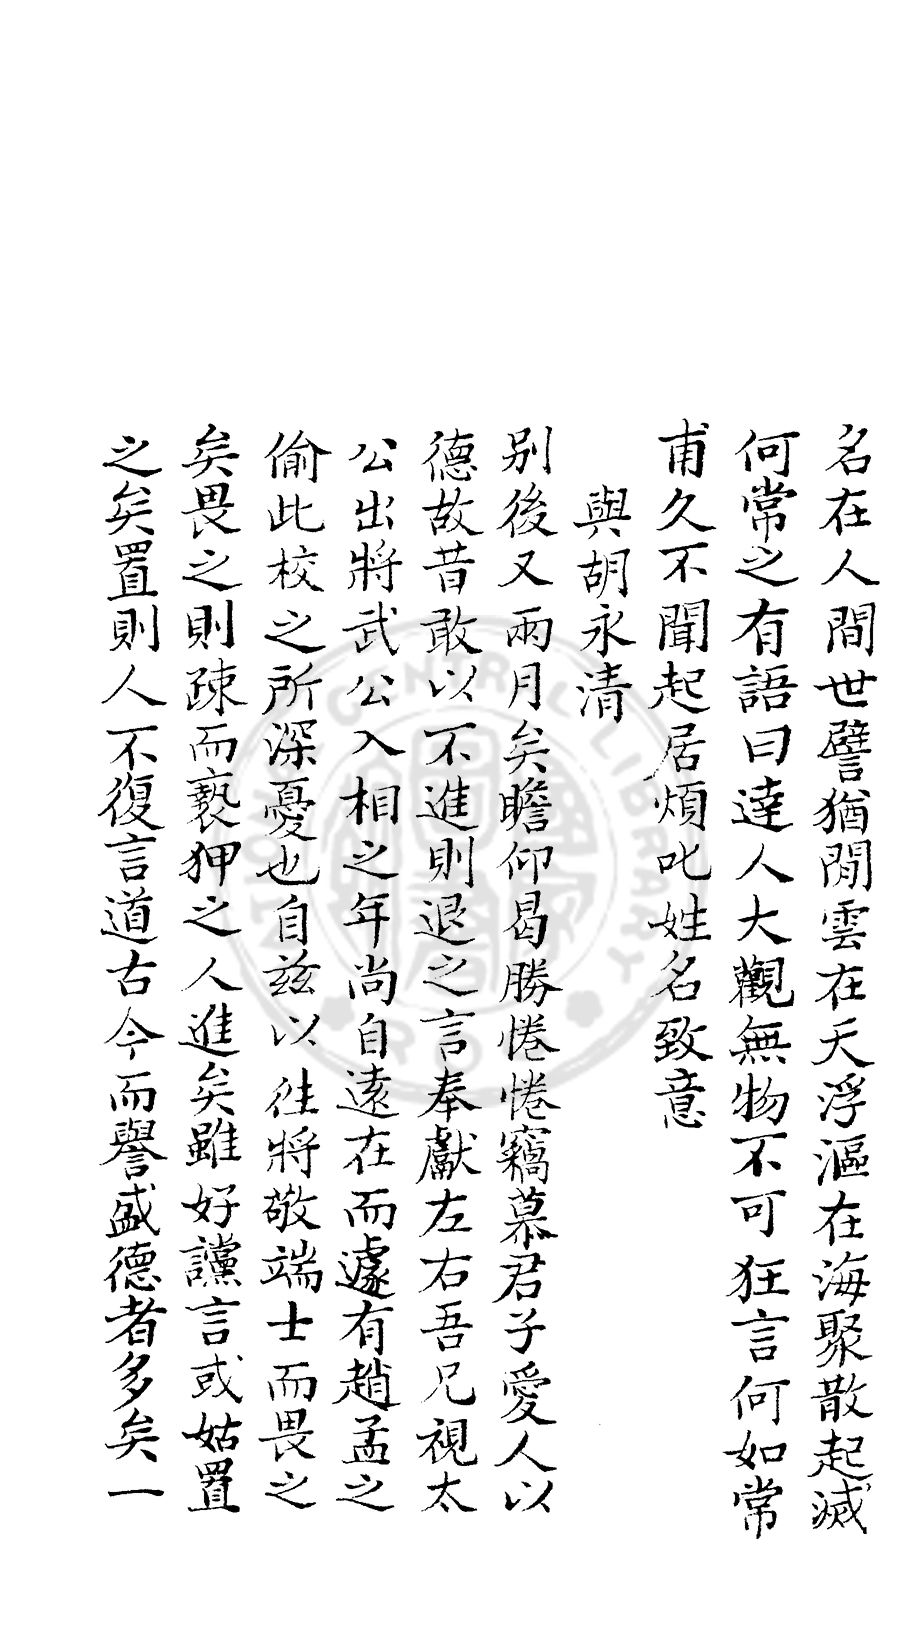 名在人間世譬猶閒雲在天浮漚在海聚散起滅
何常之有語曰達人大觀無物不可狂言何如常
甫久不聞起居煩叱姓名致意
與胡永清
別後又兩月矣瞻仰曷勝惓惓竊慕君子愛人以
德故昔敢以不進則退之言奉獻左右吾兄視太
公出將武公入相之年尚自遠在而遽有趙孟之
偷此校之所深憂也自兹以徃將敬端士而畏之
矣畏之則疎而褻狎之人進矣雖好讜言或姑置
之矣置則人不復言道古今而譽盛德者多矣一
CENTRAL LIBRARY